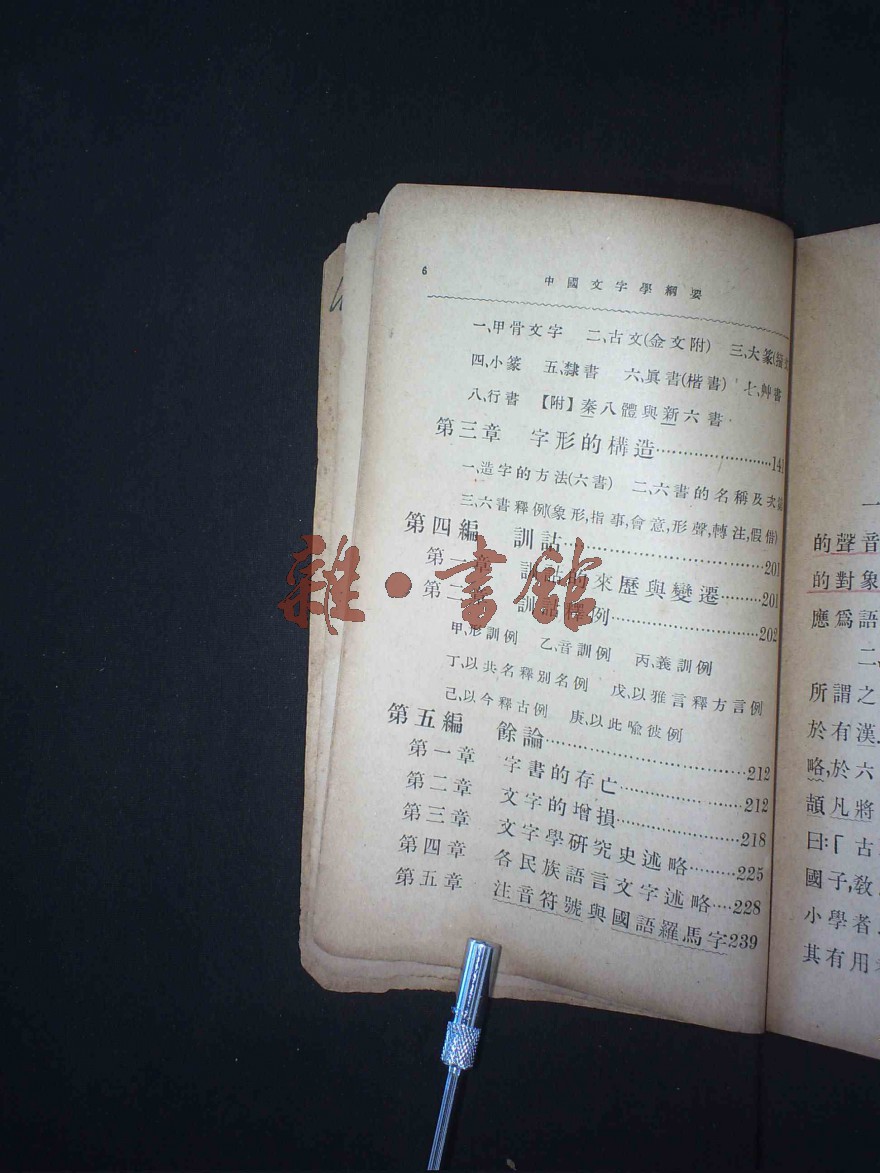 6
中國文字學綱要
一、甲骨文字 二、古文(金文附) 三、大篆(籀文
四、小篆 五、隸書 六、眞書(楷書) 七、艸書
八、行書 【附】秦八體與新六書
第三章 字形的構造……………………141
一、造字的方法(六書) 二、六書的名稱及次
三、六書釋例(象形,指事,會意,形聲,轉注,假借)
第四編 訓詁……………………………201
第一章 訓詁的來歷與變遷………201
第二章 訓詁釋例……………………202
甲、形訓例 乙、音訓例 丙、義訓例
丁、以共名釋別名例 戊、以雅言釋方言例
己、以今釋古例 庚、以此喩彼例
第五編 餘論……………………………212
第一章 字書的存亡…………………212
第二章 文字的增損…………………218
第三章 文字學研究史述略………225
第四章 各民族語言文字述略……228
第五章 注音符號與國語羅馬字239
雜·書館
一
的聲音
的對象
應爲語
二、
所謂之
於有漢
略,於六
頡凡將
曰:「古
國子,敎
小學者
其有用